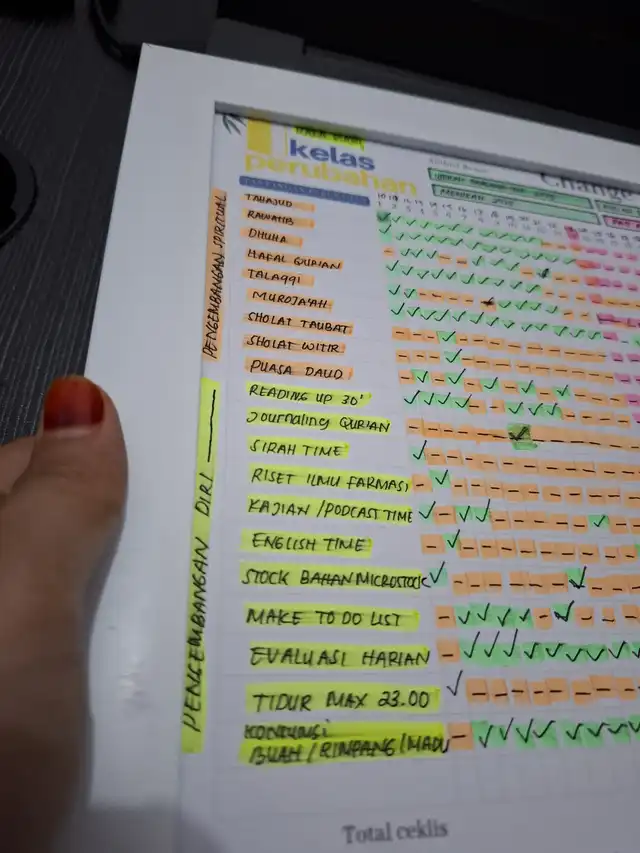 kelas
perubahan
Change
PENGEMBANGAN SPIRITUAL
TAHAJUD
RAWATIB
DHUHA
HAFAL QUR'AN
TALAQQI
MUROJA'AH
SHOLAT TAUBAT
SHOLAT WITIR
PUASA DAUD
PENGEMBANGAN DIRI
READING UP 30'
Journaling QUR'AN
SIRAH TIME
RISET ILMU FARMASI
KAJIAN / PODCAST TIME
ENGLISH TIME
STOCK BAHAN MICROSTOCK
MAKE TO DO LIST
EVALUASI HARIAN
TIDUR MAX 23.00
KONSUMSI
BUAH / RIMPANG / MADU
Total ceklis